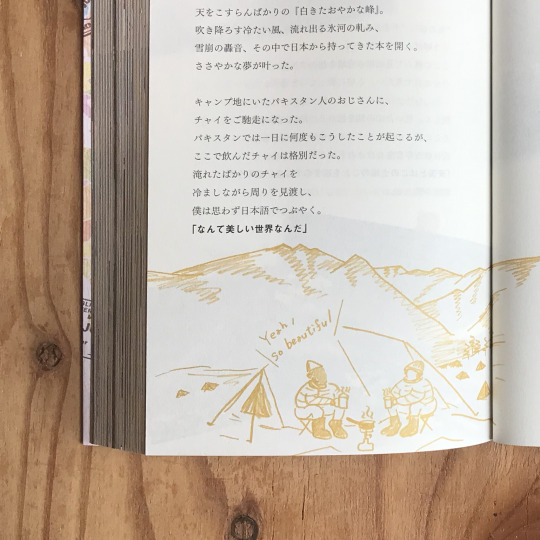 天をこすらんばかりの『白きたおやかな峰』。
吹き降ろす冷たい風、流れ出る氷河の軋み、
雪崩の轟音、その中で日本から持ってきた本を開く。
ささやかな夢が叶った。
キャンプ地にいたパキスタン人のおじさんに、
チャイをご馳走になった。
パキスタンでは一日に何度もこうしたことが起こるが、
ここで飲んだチャイは格別だった。
淹れたばかりのチャイを
冷ましながら周りを見渡し、
僕は思わず日本語でつぶやく。
「なんて美しい世界なんだ」
Yeah,
so beautiful